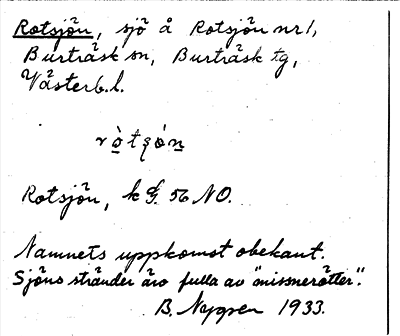 Rotsjön, sjö å Rotsjön nr 1,
Burträsk sn, Burträsk tg,
Västerb. l.
Rotsjön, k G. 56 NO.
Namnets uppkomst obekant.
Sjöns stränder äro fulla av "missnerötter".
B. Nygren 1933.